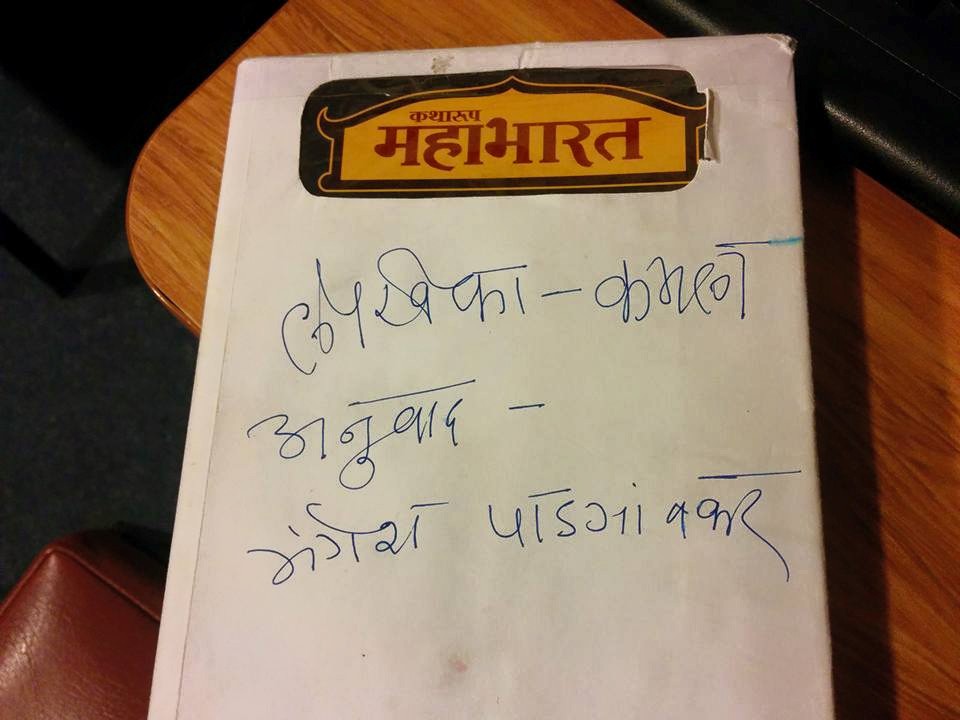 कथारूप
महाभारत
लेखिका - कमला
अनुवाद -
मंगेश पाडगांवकर